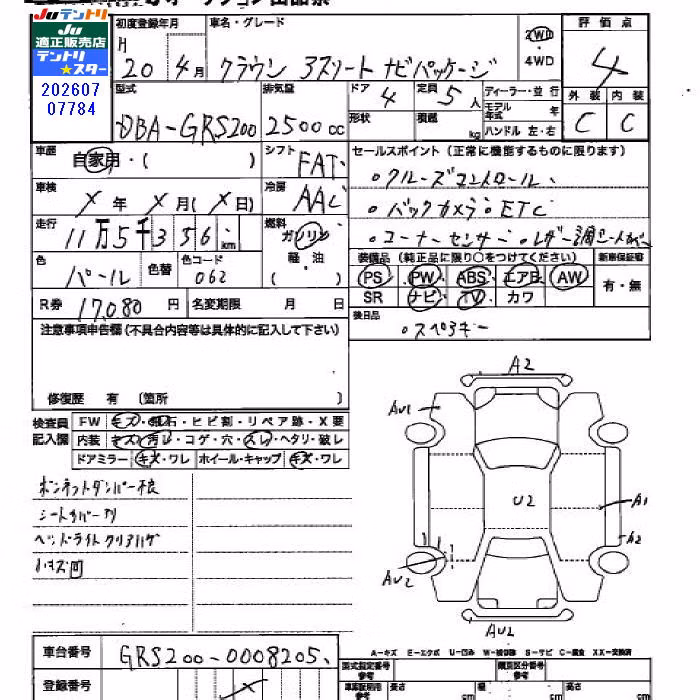 Juテントリ
Ju
適正販売店
テントリ
★スター
202607
07784
初度登録年月
H
20 年 4 月
車名・グレード
クラウン 3ズリート ナビパッケージ
2WD
・
4WD
評価点
4
外装 内装
C C
型式
DBA-GRS200
排気量
2500 cc
ドア
4
形状
定員
5 人
積載
kg
ディーラー・並行
モデル年式 年
ハンドル 左・右
車歴
自家用・( )
シフト
FAT
セールスポイント(正常に機能するものに限ります)
。クルーズコントロール
。バックカメラ。ETC
。コーナーセンサー。レザー調シートカバー
車検
X 年 X 月(X 日)
冷房
AAC
走行
11万5千356 km
燃料
ガソリン
(軽・油)
色
パール
色替
色コード
062
装備品(純正品に限り○をつけてください)
PS PW ABS エアB AW
SR ナビ TV カワ
新車保証書
有・無
R券 17,080 円
名変期限 月 日
後日品
。スペアキー
注意事項申告欄(不具合内容等は具体的に記入して下さい)
修復歴 有 〔箇所 〕
検査員
記入欄
FW キズ・飛石・ヒビ割・リペア跡・X要
内装 キズ・汚レ・コゲ・穴・スレ・ヘタリ・破レ
ドアミラー キズ・ワレ ホイール・キャップ キズ・ワレ
ボンネットダンパー不良
シートカバー付
ヘッドライトクリアハゲ
小キズ凹
A2
AU1
U2
A1
A2
AU2
AU2
A-キズ E-エクボ U-凹み W-補修跡 S-サビ C-腐食 XX-交換済
車台番号
GRS200-0008205
登録番号
X
型式指定番号
参考
類別区分番号
参考
車検証期用
参考
長さ
cm
幅
cm
高さ
cm